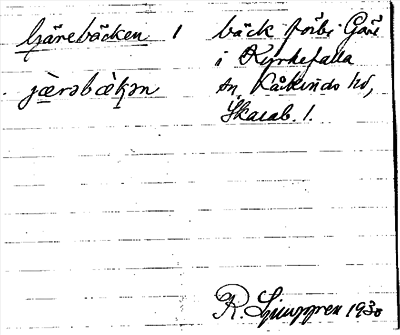 Gärebäcken 1 bäck förbi Gäre
i Kyrkefalla
jæ̀rəbæ̀kən sn, Kåkinds hd,
Skarab. l.
R. Ljunggren 1930